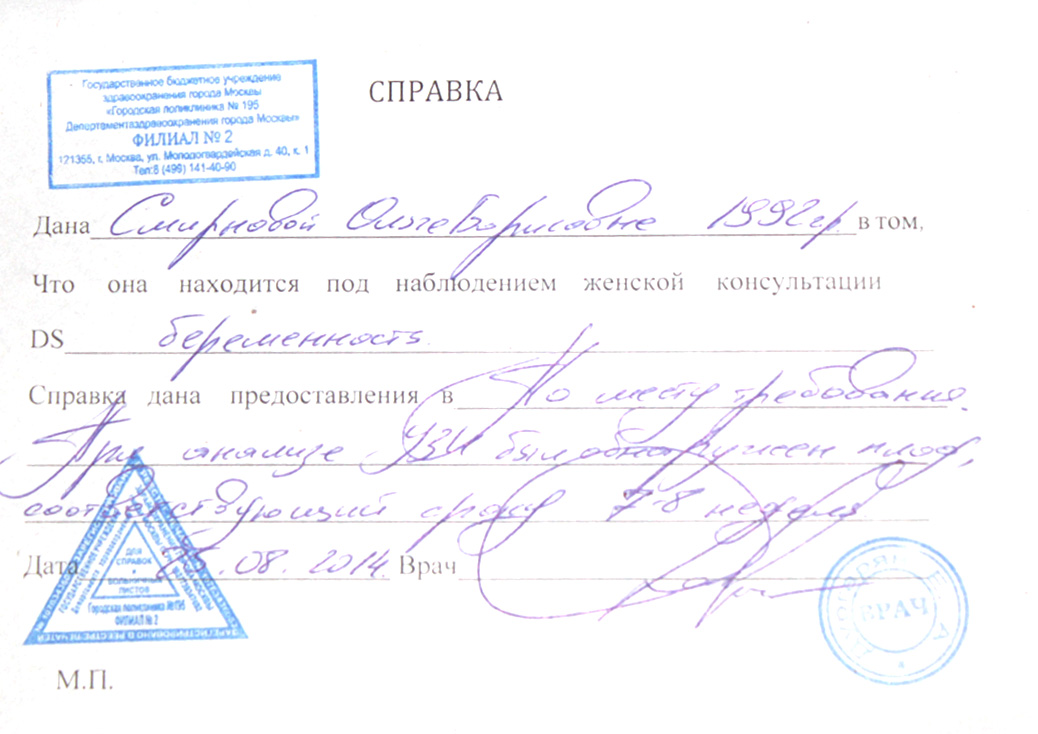 Государственное бюджетное учреждение
здравоохранения города Москвы
«Городская поликлиника № 195
Департамента здравоохранения города Москвы»
ФИЛИАЛ № 2
121355, г. Москва, ул. Молодогвардейская д. 40, к. 1
Тел:8 (499) 141-40-90
СПРАВКА
Дана Смирновой Ольге Борисовне 1992 г.р. в том,
Что она находится под наблюдением женской консультации
DS беременность
Справка дана предоставления в По месту требования.
При анализе УЗИ был обнаружен плод,
соответствующий сроку 7-8 недель
Дата 25.08.2014. Врач
ДЛЯ
СПРАВОК
БОЛЬНИЧНЫХ
ЛИСТОВ
Городская поликлиника №195
ФИЛИАЛ № 2
ЗАРЕГИСТРИРОВАНО В РЕЕСТРЕ ПЕЧАТЕЙ
ВРАЧ
М.П.